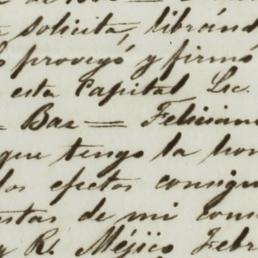 solicita, libránd
proveyó y firmó
esta Capital Lic.
Baz = Feliciano
que tengo la hon
los efectos consigu
estas de mi cons
y R. Méjico Febr